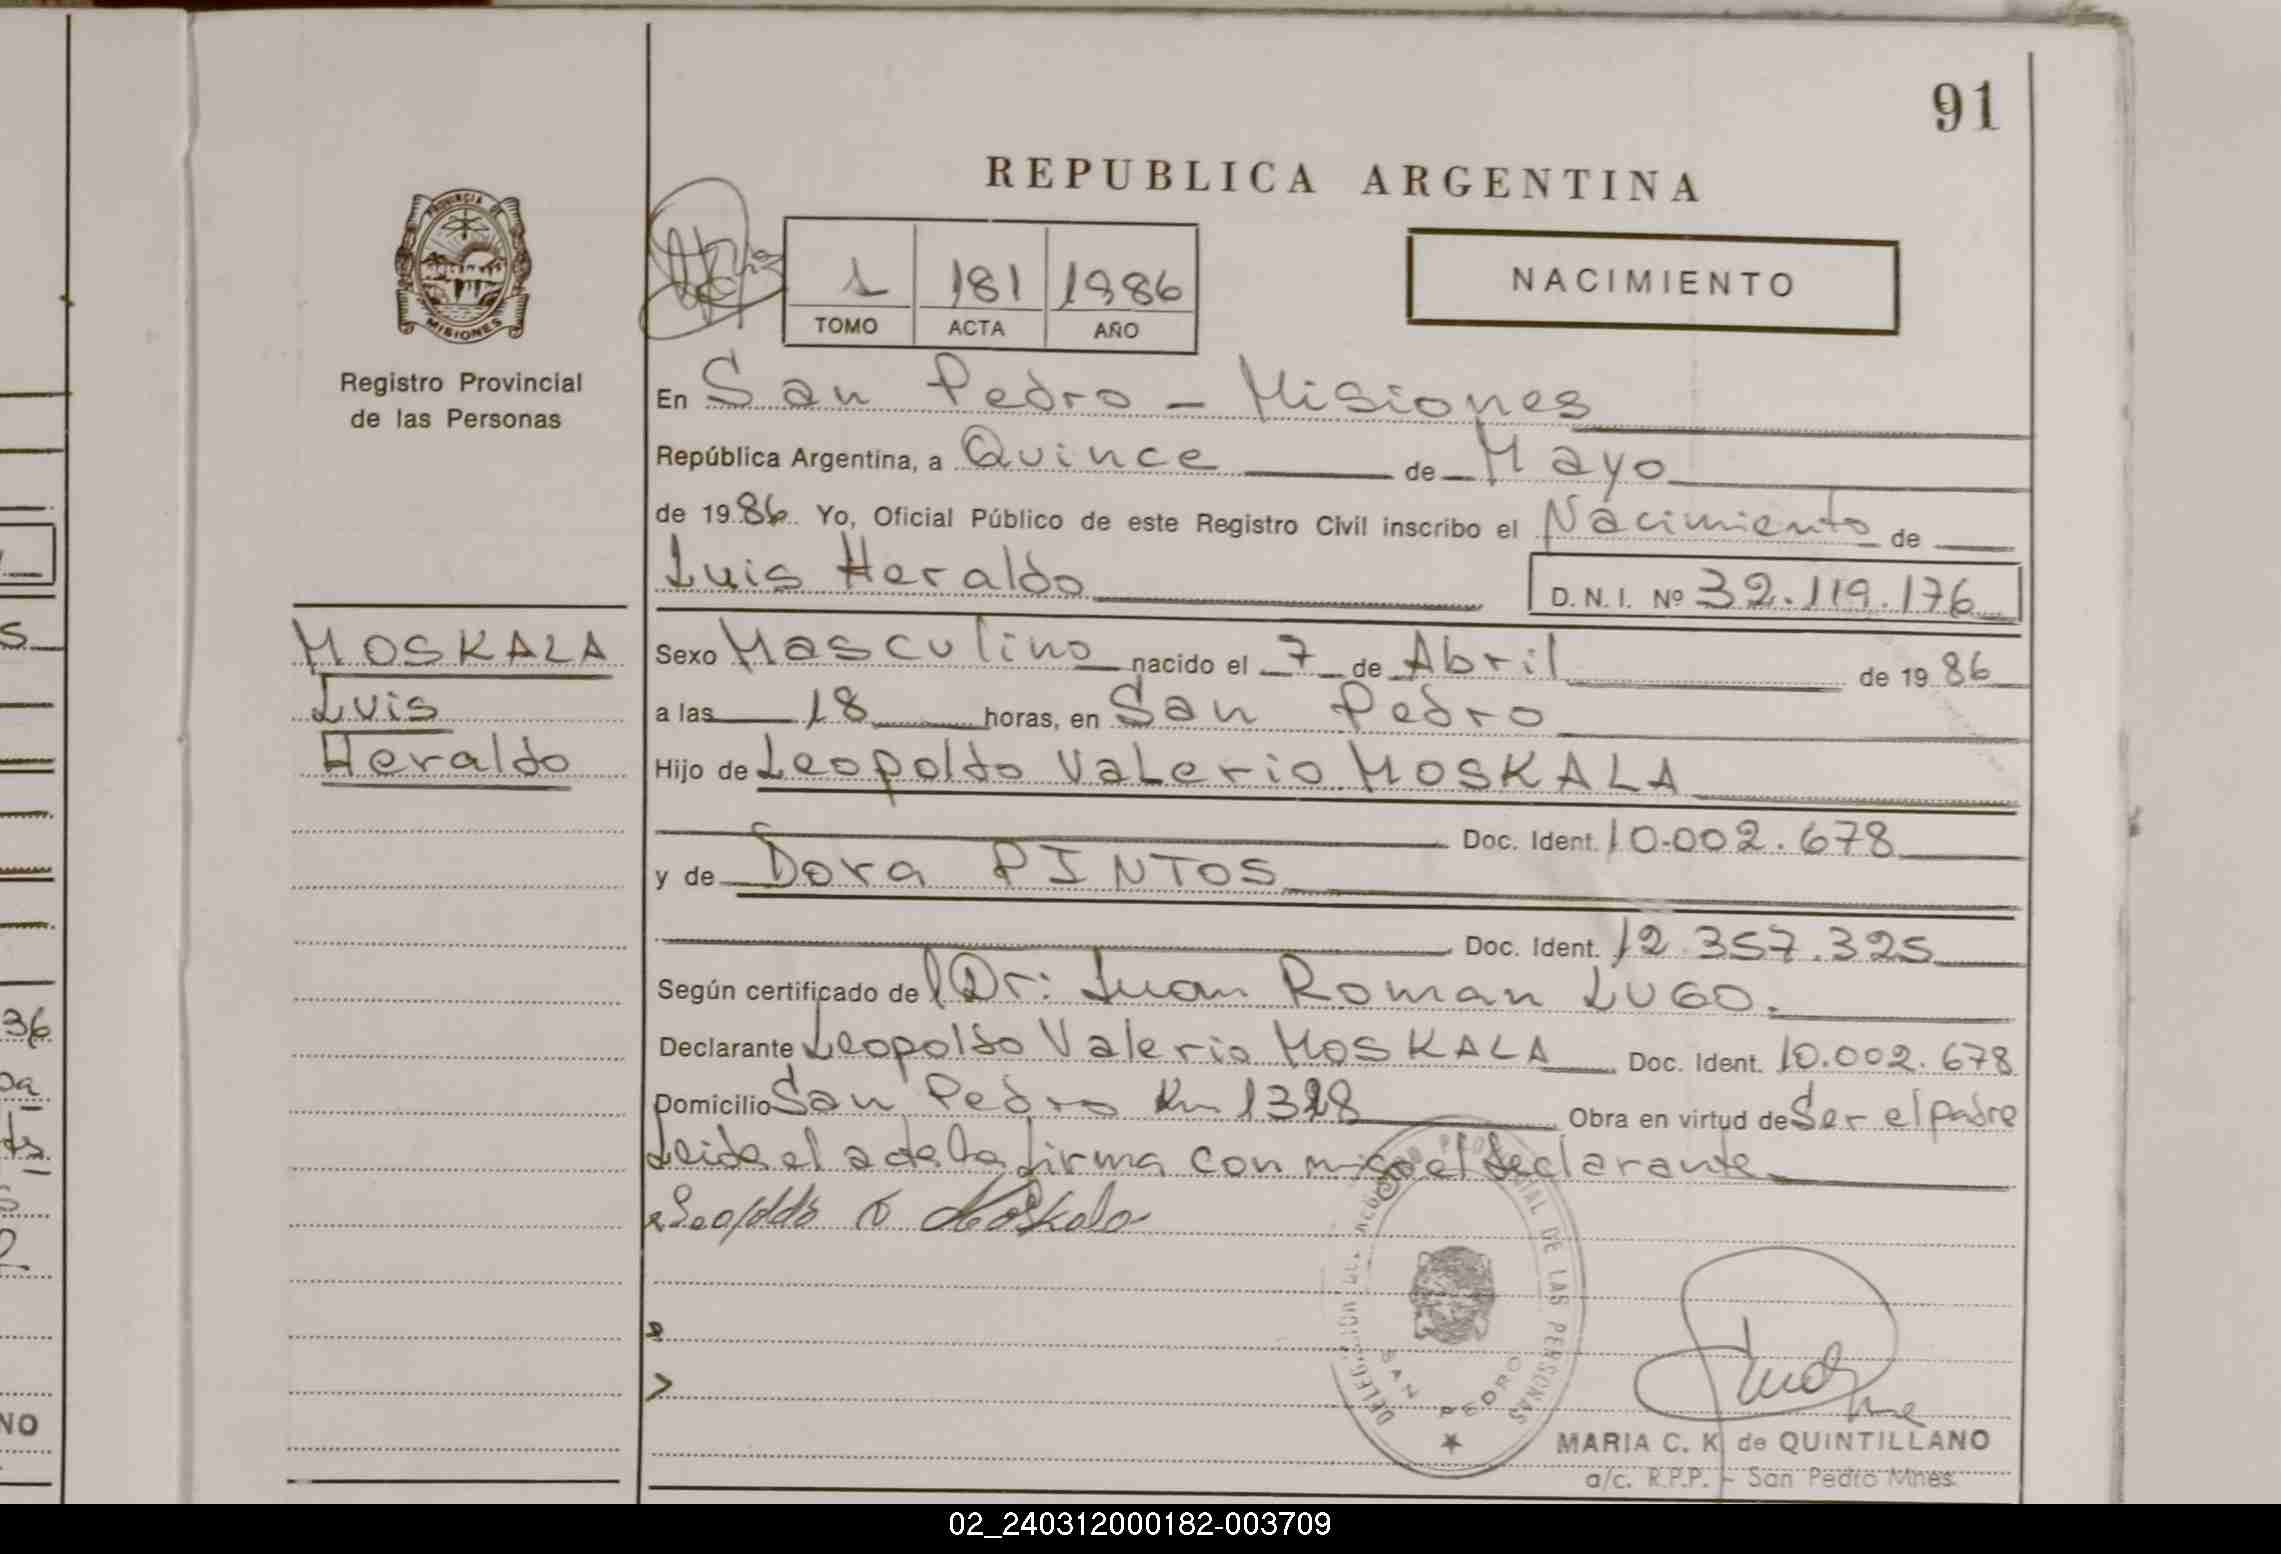 91
REPUBLICA ARGENTINA
PROVINCIA DE
MISIONES
Registro Provincial
de las Personas
1 181 1986
TOMO ACTA AÑO
NACIMIENTO
En San Pedro - Misiones
República Argentina, a Quince de Mayo
de 1986. Yo, Oficial Público de este Registro Civil inscribo el Nacimiento de
Luis Heraldo D. N. I. Nº 32.119.176
MOSKALA
Luis
Heraldo
Sexo Masculino nacido el 7 de Abril de 1986
a las 18 horas, en San Pedro
Hijo de Leopoldo Valerio MOSKALA
Doc. Ident. 10.002.678
y de Dora PINTOS
Doc. Ident. 12.357.325
Según certificado de Dr: Juan Roman LUGO.
Declarante Leopoldo Valerio MOSKALA Doc. Ident. 10.002.678
Domicilio San Pedro Km 1328 Obra en virtud de Ser el padre
Leida el acta la firma con migo el declarante
Leopoldo V Moskala
DE LAS PERSONAS
SAN PEDRO
MARIA C. K. de QUINTILLANO
a/c. R.P.P. - San Pedro Mnes.
36
NO
02_240312000182-003709